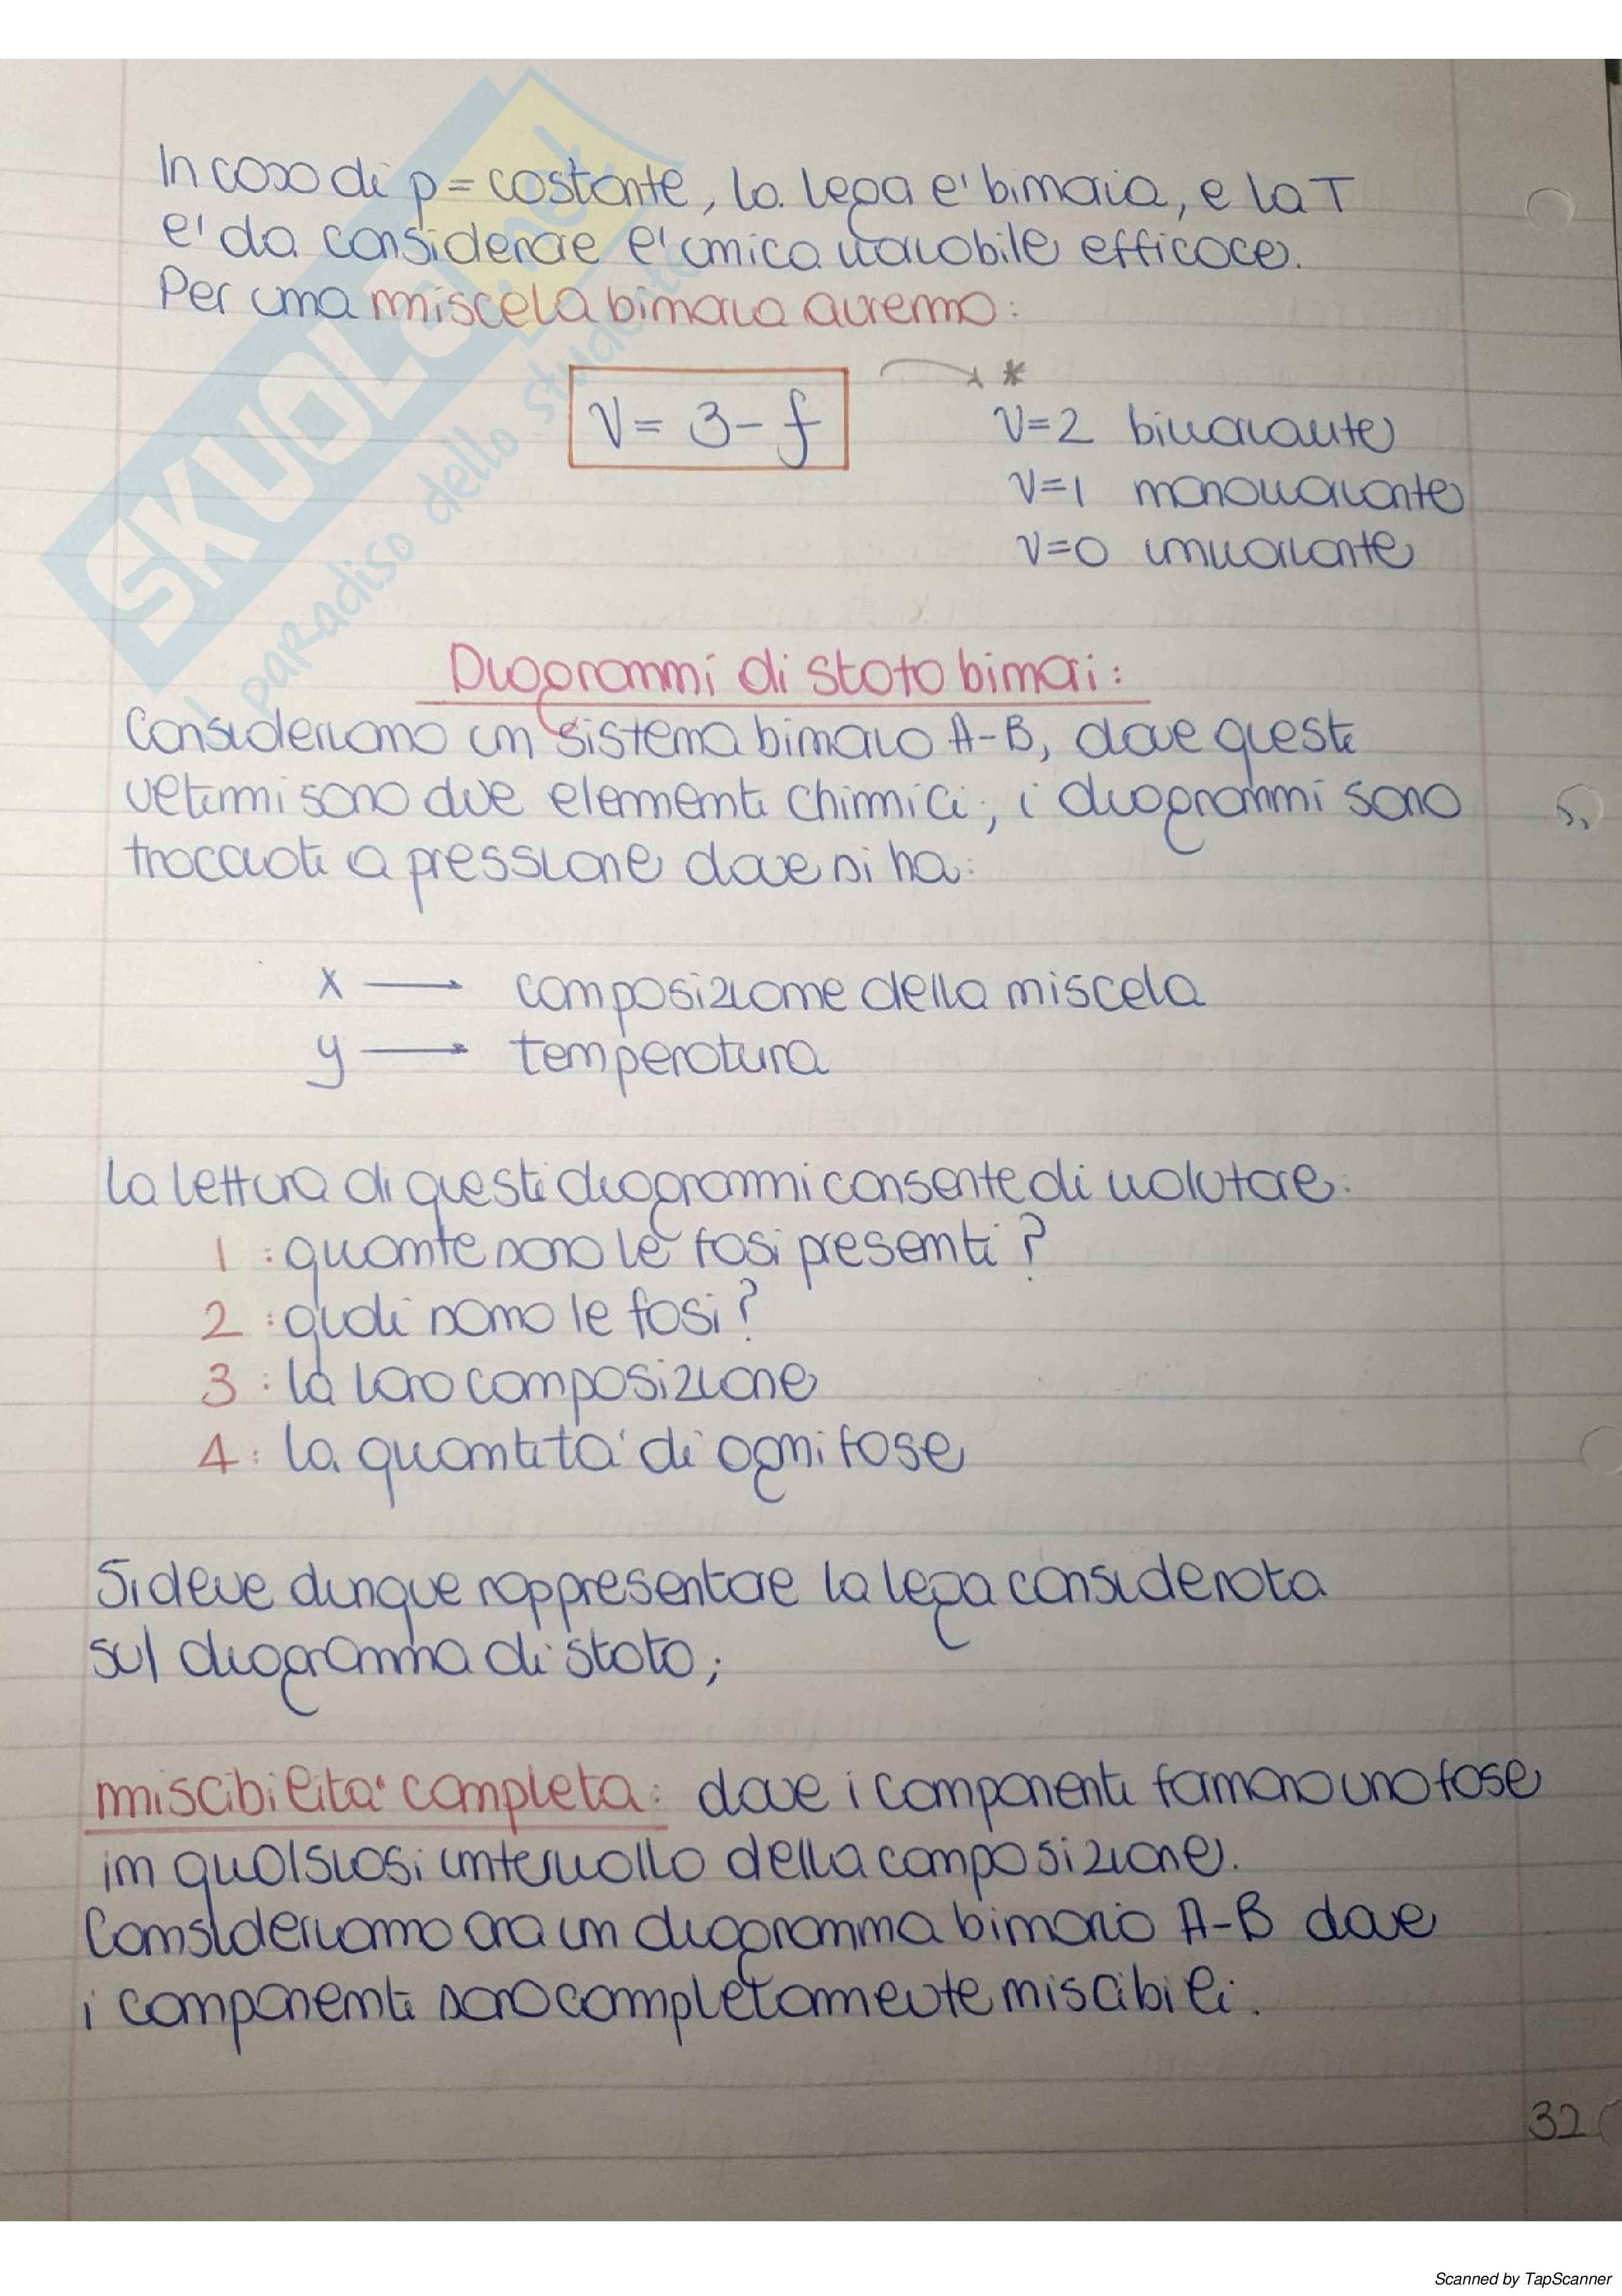 In caso di p = costante, la lega e' binaria, e la T
e' da considerare l'unica variabile efficace.
Per una miscela binaria avremo:
V = 3 - f
*
V=2 bivariante
V=1 monovariante
V=0 invariante
Diagrammi di stato binari:
Consideriamo un sistema binario A-B, dove questi
ultimi sono due elementi chimici; i diagrammi sono
tracciati a pressione dove si ha:
x → composizione della miscela
y → temperatura
La lettura di questi diagrammi consente di valutare:
1 : quante sono le fasi presenti?
2 : quali sono le fasi?
3 : la loro composizione
4 : la quantita' di ogni fase
Si deve dunque rappresentare la lega considerata
sul diagramma di stato;
miscibilita' completa: dove i componenti formano una fase
in qualsiasi intervallo della composizione.
Consideriamo ora un diagramma binario A-B dove
i componenti sono completamente miscibili.
32
SKUOLA.net
il paradiso dello studente
Scanned by TapScanner